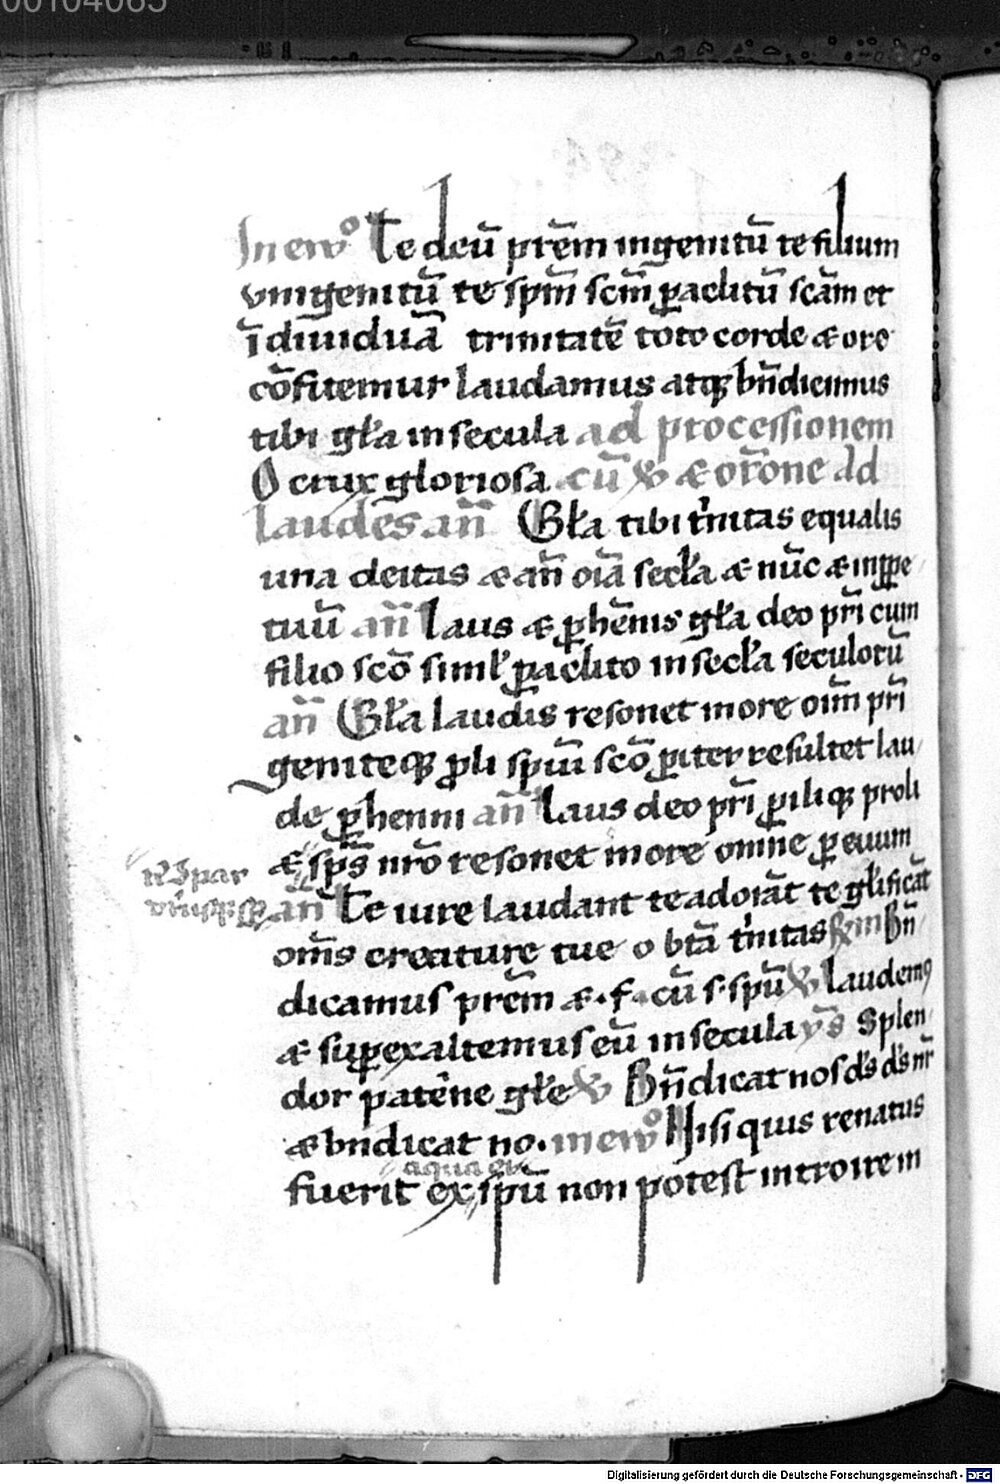 00104065
In ew̄o Te deū prēm ingenitū te filium
vnigenitū te spm̄ scm̄ paclitū scām et
īdiuiduā trinitatē toto corde & ore
cōfitemur laudamus atq bn̄dicimus
tibi gła in secula ad processionem
O crux gloriosa cū & or̄one Ad
laudes an̄ Gła tibi t'nitas equalis
una deitas & an̄ oīa secła & nūc & in ppe
tuū an̄ Laus & phēnis gła deo pr̄i cum
filio scō simł paclito in secła seculorū
an̄ Gła laudis resonet in ore oim̄ pr̄i
geniteq pli spūi scō piter resultet lau
de phenni an̄ Laus deo pr̄i piliq proli
& sps̄ nr̄o resonet in ore omne p euum
an̄ Te iure laudant te adorāt te głificāt
om̄s creature tue o btā t'nitas Bn̄
dicamus prēm &·f·cū s·spū Laudem9
& supexaltemus eū in secula Splen
dor patēne głe Bn̄dicat nos ds̄ ds̄ nr̄
& bn̄dicat no· in ew̄o Nisi quis renatus
aqua et
fuerit ex spū non potest introire in
Digitalisierung gefördert durch die Deutsche Forschungsgemeinschaft - DFG